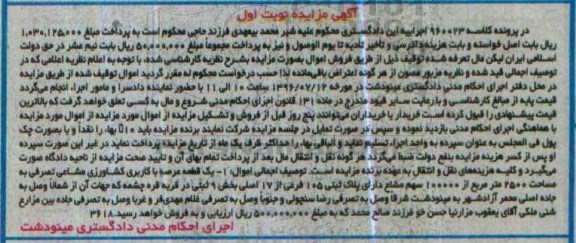 آگهی مزایده نوبت اول
در پرونده کلاسه ۹۶۰۰۲۳ اجراییه این دادگستری علیه شیر محمد بیعهدی فرزند حاجی محکوم است به پرداخت مبلغ ۱,۰۳۰,۱۲۵,۰۰۰
ریال بابت اصل خواسته و بابت هزینه دادرسی و تأخیر تأدیه تا یوم الوصول و نیز به پرداخت مجموعاً مبلغ ۵۰,۰۰۰,۰۰۰ ریال بابت نیم عشر در حق دولت
اسلامی ایران لیکن مال تعرفه شده توقیف ذیل از طریق فروش اموال بصورت مزایده بشرح نظریه کارشناسی شده، با توجه به اعلام نظریه اعلامی که در
توصیف اجمالی قید شده و نظریه مزبور مصون از هر گونه اعتراض باقی‌مانده لذا حسب درخواست محکوم له مقرر گردید اموال توقیف شده از طریق مزایده
در محل دفتر اجرای احکام مدنی دادگستری مینودشت در مورخه ۱۳۹۶/۰۷/۱۲ ساعت ۱۰ الی ۱۱ با حضور نماینده دادسرا و مامور اجرا، انجام می‌گردد
قیمت پایه از مبالغ کارشناسی و با رعایت سایر قیود مندرج در ماده ۱۳۱ قانون اجرای احکام مدنی شروع و مال به کسی تعلق خواهد گرفت که بالاترین
قیمت پیشنهادی را قبول کرده است خریدار یا خریداران می‌توانند پنج روز قبل از فروش و تشکیل مزایده از اموال مورد مزایده از اموال مورد مزایده
با هماهنگی اجرای احکام مدنی بازدید نموده و سپس در صورت تمایل در جلسه مزایده شرکت نمایند برنده مزایده باید ۱۰٪ بها، را نقداً و یا بصورت چک
پول فی المجلس به عنوان سپرده به واحد اجرا، تسلیم نماید و الباقی بها، را حداکثر ظرف یک ماه از تاریخ مزایده پرداخت نماید در غیر این صورت سپرده
او پس از کسر هزینه مزایده بنفع دولت ضبط می‌گردد هر گونه نقل و انتقال مال بعد از پرداخت تمام بهای آن و تأیید صحت مزایده از ناحیه دادگاه صورت
می‌گیرد و کلیه هزینه‌های نقل و انتقال به عهده برنده مزایده است. توصیف اجمالی اموال: ۱- یک قطعه عرصه با کاربری کشاورزی مشاعی تصرفی به
مساحت ۲۵۰۰ متر مربع از ۱۰۰۰۰۰ سهم مشاع دارای پلاک ثبتی ۱۰۵ فرعی از ۱۷ اصلی بخش ۹ ثبتی در قریه قره چشمه که جهات آن از شمالاً وصل به
جاده اصلی محمر آزادشهر به مینودشت شرقا وصل به تصرفی رضا سنچولی و جنوبا وصل به تصرفی غلام مهدی‌فر و غربا وصل به تصرفی جاده بین مزارع
شتی ملکی آقای یعقوب مزارنیا حسن خو فرزند صالح محمد که به مبلغ ۵۰۰,۰۰۰,۰۰۰ ریال ارزیابی و به فروش خواهد رسید. ۳۶۱۸
اجرای احکام مدنی دادگستری مینودشت